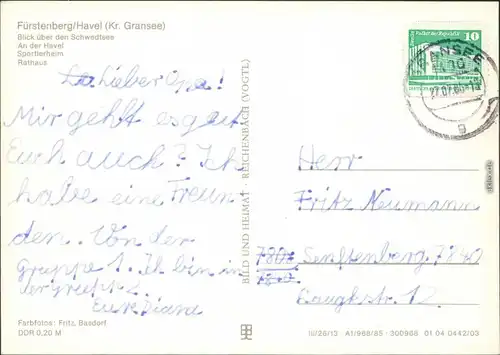 Fürstenberg/Havel (Kr. Gransee)
Blick über den Schwedtsee
An der Havel
Sportlerheim
Rathaus
Lieber Opa!
Mir geht es gut
Euch auch? Ich
habe eine Freun
den. Von der
gruppe 1. Ich bin in
der gruppe
Eure Diana
Farbfotos: Fritz, Basdorf
DDR 0,20 M
BILD UND HEIMAT · REICHENBACH (VOGTL)
10
GRANSEE
1430
27.07.
g
Herr
Fritz Neumann
Senftenberg 7840
12
III/26/13 A1/968/85 300968 01 04 0442/03